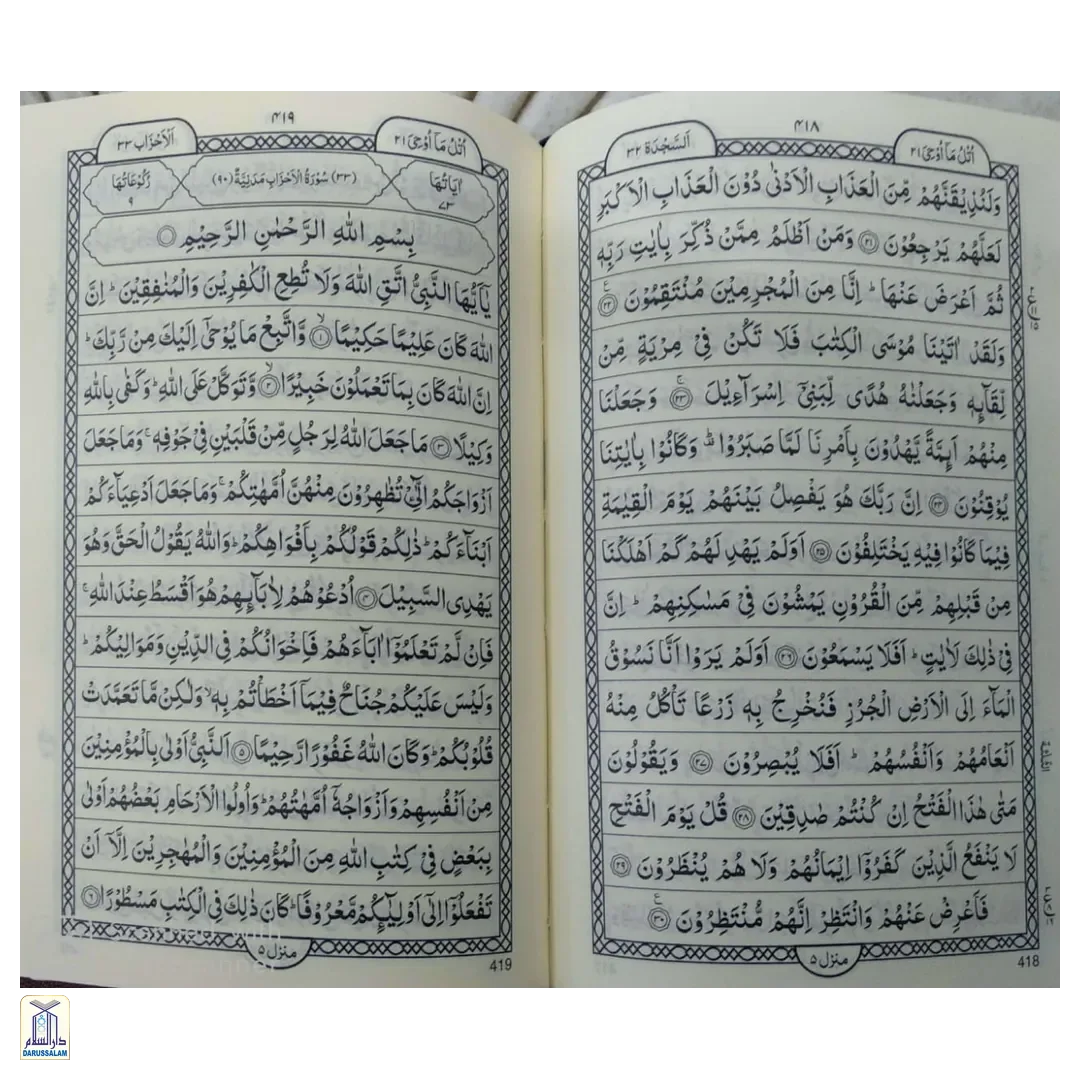 ٤١٨
اَلسَّجْدَة ٣٢
اُتْلُ مَآ اُوْحِیَ ٢١
وَلَنُذِيْقَنَّهُمْ مِّنَ الْعَذَابِ الْاَدْنٰى دُوْنَ الْعَذَابِ الْاَكْبَرِ
لَعَلَّهُمْ يَرْجِعُوْنَ ٢١ وَمَنْ اَظْلَمُ مِمَّنْ ذُكِّرَ بِاٰيٰتِ رَبِّهٖ
ثُمَّ اَعْرَضَ عَنْهَا ؕ اِنَّا مِنَ الْمُجْرِمِيْنَ مُنْتَقِمُوْنَ ٢٢
وَلَقَدْ اٰتَيْنَا مُوْسَى الْكِتٰبَ فَلَا تَكُنْ فِيْ مِرْيَةٍ مِّنْ
لِّقَآىِٕهٖ وَجَعَلْنٰهُ هُدًى لِّبَنِيْٓ اِسْرَآءِيْلَ ٢٣ وَجَعَلْنَا
مِنْهُمْ اَىِٕمَّةً يَّهْدُوْنَ بِاَمْرِنَا لَمَّا صَبَرُوْا ۫ؕ وَكَانُوْا بِاٰيٰتِنَا
يُوْقِنُوْنَ ٢٤ اِنَّ رَبَّكَ هُوَ يَفْصِلُ بَيْنَهُمْ يَوْمَ الْقِيٰمَةِ
فِيْمَا كَانُوْا فِيْهِ يَخْتَلِفُوْنَ ٢٥ اَوَلَمْ يَهْدِ لَهُمْ كَمْ اَهْلَكْنَا
مِنْ قَبْلِهِمْ مِّنَ الْقُرُوْنِ يَمْشُوْنَ فِيْ مَسٰكِنِهِمْ ؕ اِنَّ
فِيْ ذٰلِكَ لَاٰيٰتٍ ؕ اَفَلَا يَسْمَعُوْنَ ٢٦ اَوَلَمْ يَرَوْا اَنَّا نَسُوْقُ
الْمَآءَ اِلَى الْاَرْضِ الْجُرُزِ فَنُخْرِجُ بِهٖ زَرْعًا تَاْكُلُ مِنْهُ
اَنْعَامُهُمْ وَاَنْفُسُهُمْ ؕ اَفَلَا يُبْصِرُوْنَ ٢٧ وَيَقُوْلُوْنَ
مَتٰى هٰذَا الْفَتْحُ اِنْ كُنْتُمْ صٰدِقِيْنَ ٢٨ قُلْ يَوْمَ الْفَتْحِ
لَا يَنْفَعُ الَّذِيْنَ كَفَرُوْٓا اِيْمَانُهُمْ وَلَا هُمْ يُنْظَرُوْنَ ٢٩
فَاَعْرِضْ عَنْهُمْ وَانْتَظِرْ اِنَّهُمْ مُّنْتَظِرُوْنَ ٣٠
منزل ٥
418
٤١٩
اَلْاَحْزَاب ٣٣
اُتْلُ مَآ اُوْحِیَ ٢١
اٰيَاتُهَا ٧٣
(٣٣) سُوْرَةُ الْاَحْزَابِ مَدَنِيَّةٌ (٩٠)
رُكُوْعَاتُهَا ٩
بِسْمِ اللّٰهِ الرَّحْمٰنِ الرَّحِيْمِ
يٰٓاَيُّهَا النَّبِيُّ اتَّقِ اللّٰهَ وَلَا تُطِعِ الْكٰفِرِيْنَ وَالْمُنٰفِقِيْنَ ؕ اِنَّ
اللّٰهَ كَانَ عَلِيْمًا حَكِيْمًا ١ وَّاتَّبِعْ مَا يُوْحٰٓى اِلَيْكَ مِنْ رَّبِّكَ ؕ
اِنَّ اللّٰهَ كَانَ بِمَا تَعْمَلُوْنَ خَبِيْرًا ٢ وَّتَوَكَّلْ عَلَى اللّٰهِ ؕ وَكَفٰى بِاللّٰهِ
وَكِيْلًا ٣ مَا جَعَلَ اللّٰهُ لِرَجُلٍ مِّنْ قَلْبَيْنِ فِيْ جَوْفِهٖ ۚ وَمَا جَعَلَ
اَزْوَاجَكُمُ الّٰٓـِٔيْ تُظٰهِرُوْنَ مِنْهُنَّ اُمَّهٰتِكُمْ ۚ وَمَا جَعَلَ اَدْعِيَآءَكُمْ
اَبْنَآءَكُمْ ؕ ذٰلِكُمْ قَوْلُكُمْ بِاَفْوَاهِكُمْ ؕ وَاللّٰهُ يَقُوْلُ الْحَقَّ وَهُوَ
يَهْدِى السَّبِيْلَ ٤ اُدْعُوْهُمْ لِاٰبَآىِٕهِمْ هُوَ اَقْسَطُ عِنْدَ اللّٰهِ ۚ
فَاِنْ لَّمْ تَعْلَمُوْٓا اٰبَآءَهُمْ فَاِخْوَانُكُمْ فِي الدِّيْنِ وَمَوَالِيْكُمْ ؕ
وَلَيْسَ عَلَيْكُمْ جُنَاحٌ فِيْمَآ اَخْطَاْتُمْ بِهٖ ۙ وَلٰكِنْ مَّا تَعَمَّدَتْ
قُلُوْبُكُمْ ؕ وَكَانَ اللّٰهُ غَفُوْرًا رَّحِيْمًا ٥ اَلنَّبِيُّ اَوْلٰى بِالْمُؤْمِنِيْنَ
مِنْ اَنْفُسِهِمْ وَاَزْوَاجُهٗٓ اُمَّهٰتُهُمْ ؕ وَاُولُوا الْاَرْحَامِ بَعْضُهُمْ اَوْلٰى
بِبَعْضٍ فِيْ كِتٰبِ اللّٰهِ مِنَ الْمُؤْمِنِيْنَ وَالْمُهٰجِرِيْنَ اِلَّآ اَنْ
تَفْعَلُوْٓا اِلٰٓى اَوْلِيٰٓىِٕكُمْ مَّعْرُوْفًا ؕ كَانَ ذٰلِكَ فِي الْكِتٰبِ مَسْطُوْرًا ٦
منزل ٥
419
دارالسلام
DARUSSALAM